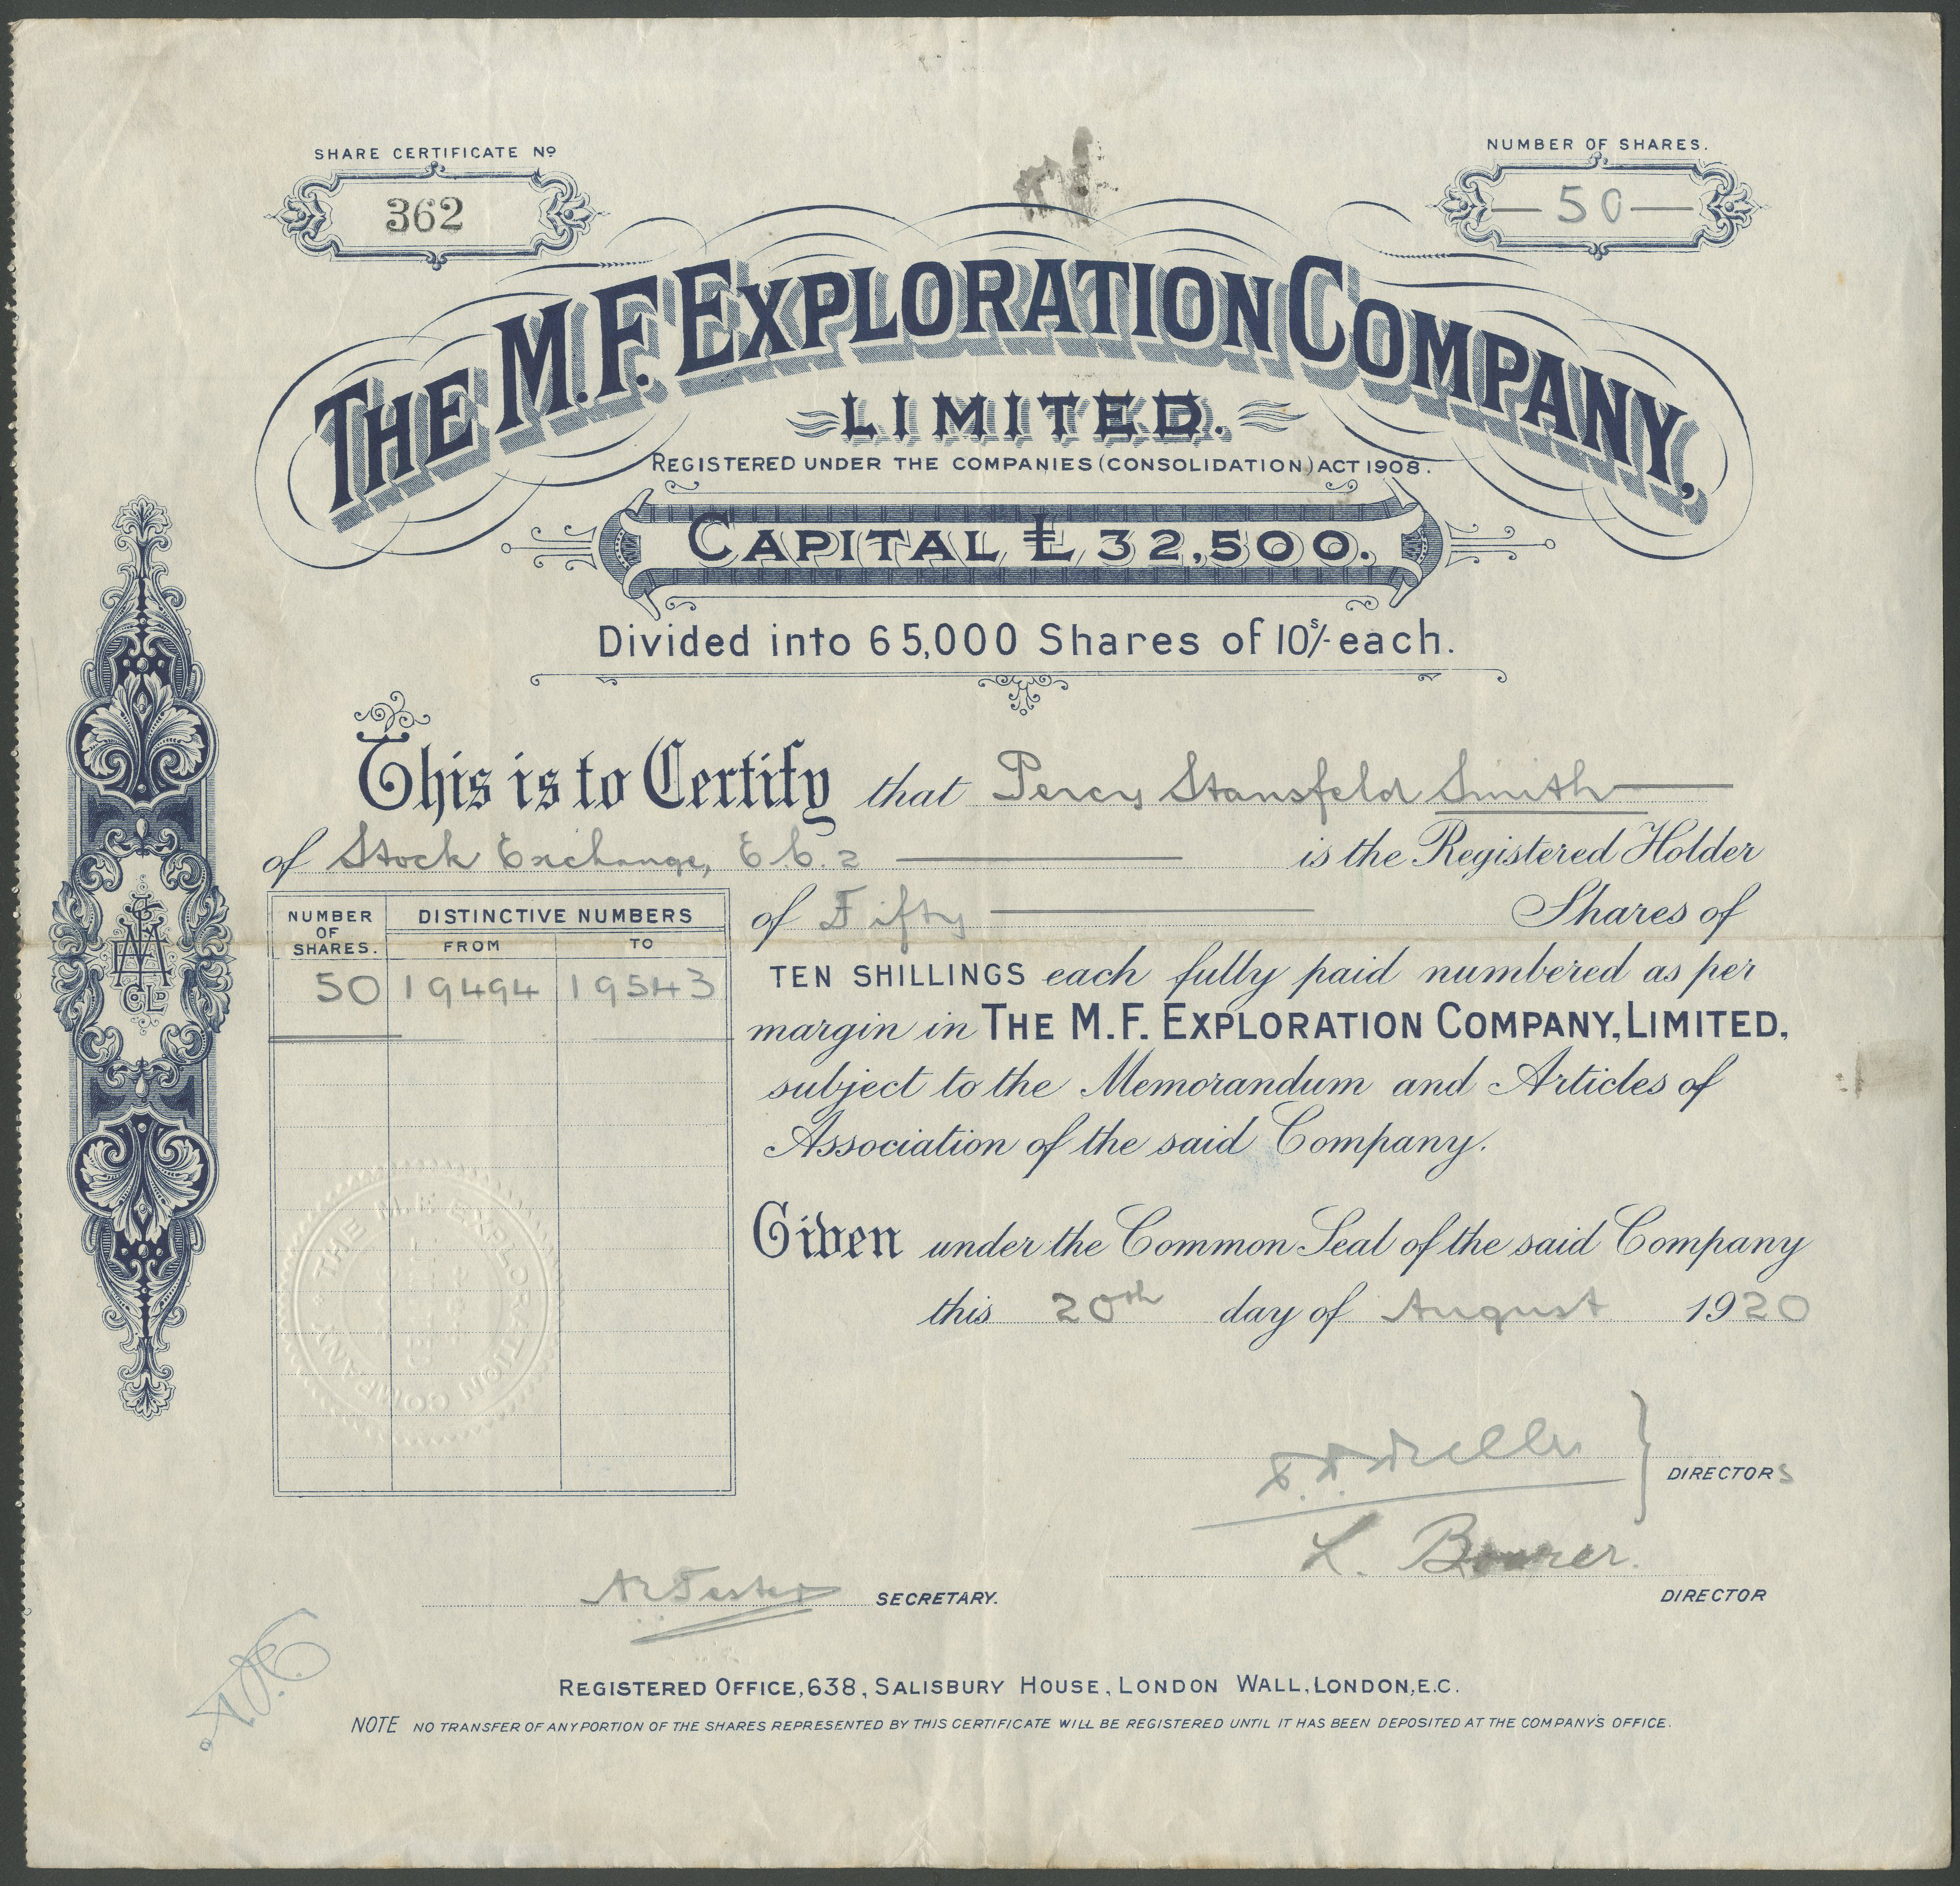 SHARE CERTIFICATE Nº
362
NUMBER OF SHARES.
50
THE M.F. EXPLORATION COMPANY,
LIMITED.
REGISTERED UNDER THE COMPANIES (CONSOLIDATION) ACT 1908.
CAPITAL £32,500.
Divided into 65,000 Shares of 10s/- each.
This is to Certify that Percy Stansfeld Smith
of Stock Exchange, E.C.2 is the Registered Holder
of Fifty Shares of
TEN SHILLINGS each fully paid numbered as per
margin in THE M.F. EXPLORATION COMPANY, LIMITED,
subject to the Memorandum and Articles of
Association of the said Company.
NUMBER OF SHARES. DISTINCTIVE NUMBERS
FROM TO
50 19494 19543
THE M.F. EXPLORATION COMPANY
Given under the Common Seal of the said Company
this 20th day of August 1920
DIRECTORS
L.
DIRECTOR
SECRETARY.
REGISTERED OFFICE, 638, SALISBURY HOUSE, LONDON WALL, LONDON, E.C.
NOTE NO TRANSFER OF ANY PORTION OF THE SHARES REPRESENTED BY THIS CERTIFICATE WILL BE REGISTERED UNTIL IT HAS BEEN DEPOSITED AT THE COMPANY'S OFFICE.